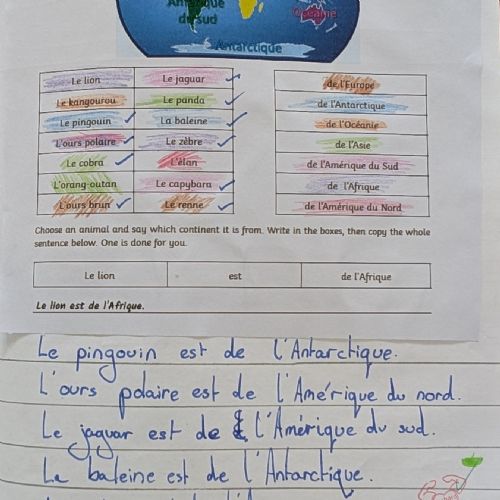 Amérique
du sud
Océanie
Antarctique
Le lion Le jaguar
Le kangourou Le panda
Le pingouin La baleine
L'ours polaire Le zèbre
Le cobra L'élan
L'orang-outan Le capybara
L'ours brun Le renne
de l'Europe
de l'Antarctique
de l'Océanie
de l'Asie
de l'Amérique du Sud
de l'Afrique
de l'Amérique du Nord
Choose an animal and say which continent it is from. Write in the boxes, then copy the whole
sentence below. One is done for you.
Le lion est de l'Afrique
Le lion est de l'Afrique.
Le pingouin est de l'Antarctique.
L'ours polaire est de l'Amérique du nord.
Le jaguar est de l'Amérique du sud.
La baleine est de l'Antarctique.